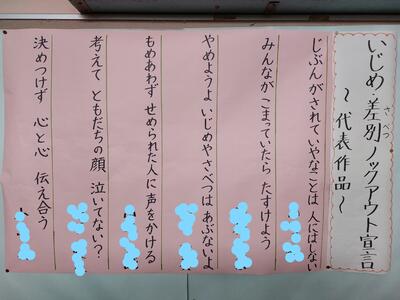 いじめ・差別ノックアウト宣言
さべつ
～代表作品～
じぶんがされていやなことは 人にはしない
みんなが こまっていたら たすけよう
やめようよ いじめやさべつは あぶないよ
もめあわず せめられた人に 声をかける
考えて ともだちの顔、泣いてない？
決めつけず 心と心 伝え合う